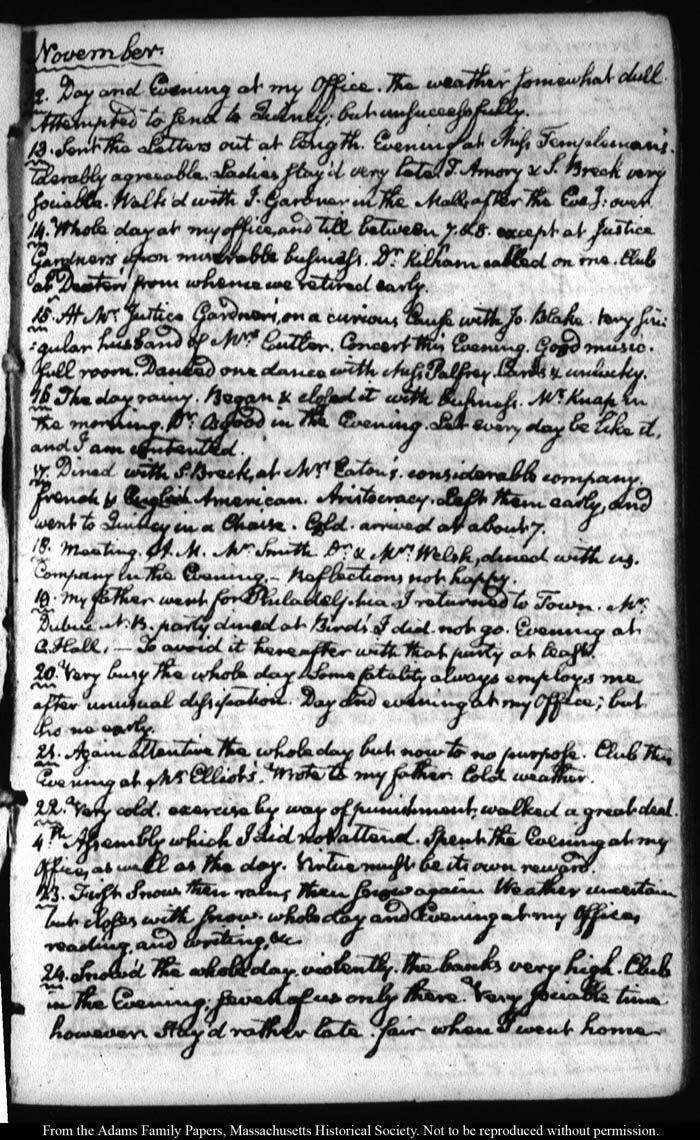 November.
12. Day and Evening at my Office. The weather somewhat dull.
Attempted to send to Quincy; but unsuccessfully.
13. Sent the Letters out at length. Evening at Miss Templeman's.
tolerably agreeable. Ladies stay'd very late. T. Amory & S. Breck very
sociable. Walk'd with J. Gardner in the Mall, after the Eve.g over.
14. Whole day at my office, and till between 7. & 8. except at Justice
Gardner's upon miserable business. Dr. Kilham called on me. Club
at Dexter's from whence we retired early.
15. At Mr. Justice Gardner's, on a curious Cause with Jo. Blake. Very sin:
:gular husband of Mrs. Cutler. Concert this Evening. Good music.
full room. Danced one dance with Miss Palfrey. Cards & unlucky.
16. The day rainy. Began & closed it with business. Mr. Knap in
the morning. Dr. Osgood in the Evening. Let every day be like it,
and I am contented.
17. Dined with S. Breck, at Mrs. Eaton's. considerable company.
French & English American. Aristocracy. Left them early, and
went to Quincy in a Chaise. Cold. arrived at about 7.
18. Meeting. A.M. Mr. Smith Dr. & Mrs. Welsh, dined with us.
Company in the Evening.— Reflections not happy.
19. My father went for Philadelphia. I returned to Town. Mr.
party dined at Bird's. I did not go. Evening at
C. Hall.— To avoid it hereafter with that party at least.
20. Very busy the whole day. Some fatality always employs me
after unusual dissipation. Day and evening at my Office; but
home early.
21. Again attentive the whole day but now to no purpose. Club this
Evening at Mr. Elliot's. Wrote to my father. Cold weather.
22. Very cold. exercise by way of punishment, walked a great deal.
4th. Assembly which I did not attend. Spent the Evening at my
Office, as well as the day. Virtue must be its own reward.
23. First Snow then rain, then snow again. Weather uncertain
but closes with snow. whole day and Evening at my Office,
reading, and writing, &c
24. Snow'd the whole day, violently. the banks very high. Club
in the Evening; seven of us only there. Very sociable time
however. Stay'd rather late. fair when I went home
From the Adams Family Papers, Massachusetts Historical Society. Not to be reproduced without permission.